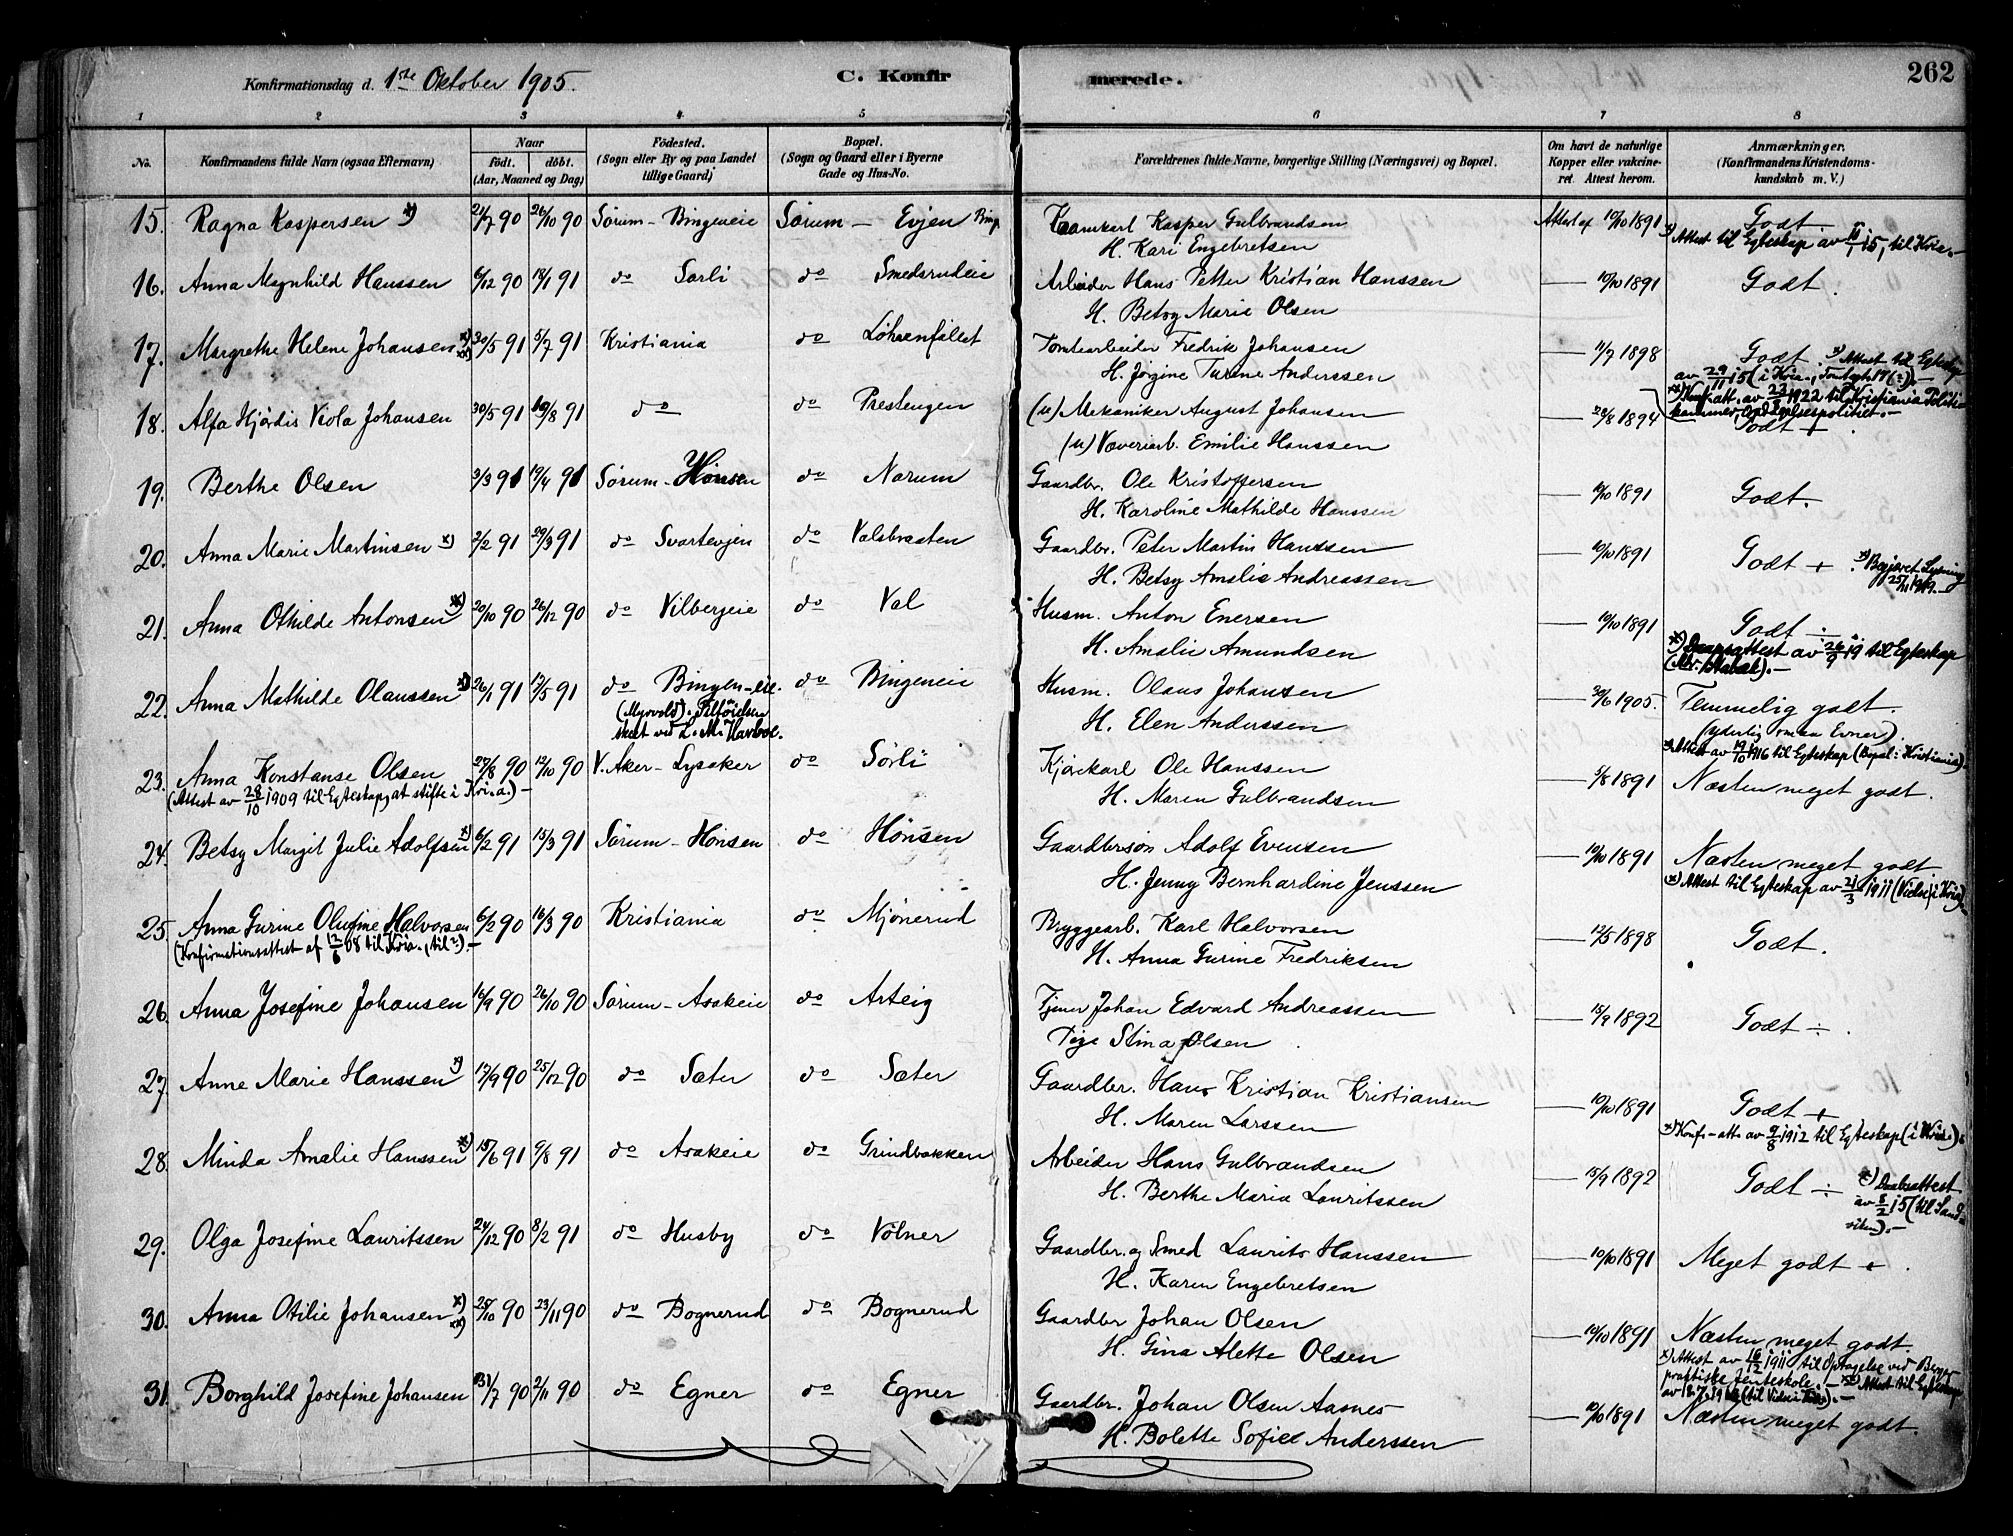 Konfirmationsdag d. 1ste Oktober 1905.
C. Konfirmerede.
262
1 2 3 4 5 6 7 8
No. Konfirmandens fulde Navn (ogsaa Efternavn) Naar födt. döbt. (Aar, Maaned og Dag) Födested. (Sogn eller By og paa Landet tillige Gaard) Bopæl. (Sogn og Gaard eller i Byerne Gade og Hus-No. Forældrenes fulde Navne, borgerlige Stilling (Næringsvei) og Bopæl. Om havt de naturlige Kopper eller vakcineret. Attest herom. Anmærkninger. (Konfirmandens Kristendomskundskab m. V.)
15. Ragna Kaspersen x) 21/7 90 26/10 90 Sørum - Bingeneie Sørum - Evjen Kasper Gulbrandsen Attest af 10/10 1891 Godt.
H. Kari Engebretsen x) Attest til Egteskap av 15, til Kria.-
16. Anna Magnhild Hanssen 6/12 90 18/1 91 do Sørli do Smedsrudeie Arbeider Hans Petter Kristian Hanssen — 10/10 1891 Godt.
H. Betsy Marie Olsen
17. Margrethe Helene Johansen x) xx) 30/5 91 5/7 91 Kristiania do Løhrenfallet Tomtearbeider Fredrik Johansen — 11/7 1898 Godt. x) Attest til Egteskap
H. Jørgine Turine Anderssen av 29/11 15 (i Kria.
xx) Konf. att. av 1922 til Kristiania Politikammer, Opdagelsespolitiet.-
18. Alfa Hjördis Viola Johansen 30/5 91 /8 91 do do Prestengen (u) Mekaniker August Johansen — 28/8 1894 Godt +.
(u) Væveriarb. Emilie Hanssen
19. Berthe Olsen 3/3 91 19/4 91 Sørum - Hönsen do Narum Gaardbr. Ole Kristoffersen — 10/10 1891 Godt.
H. Karoline Mathilde Hanssen
20. Anna Marie Martinsen x) 2/2 91 29/3 91 do Svartevjen do Valsbraaten Gaardbr. Peter Martin Hanssen — 10/10 1891 Godt +. x) Begjæret Lysning
H. Betsy Amalie Andreassen 1919.-
21. Anna Othilde Antonsen x) 20/10 90 26/12 90 do Vilbergeie do Val Husm. Anton Enersen — 10/10 1891 Godt ÷
H. Amalie Amundsen x) Daapsattest av 26/9 19 til Egteskap
22. Anna Mathilde Olaussen x) 26/1 91 17/5 91 do Bingen-eie. do Bingeneie Husm. Olaus Johansen — 30/6 1905. Temmelig godt.
(Myrvold). Tilføielsen H. Elen Anderssen (yderlig smaa Evner).
skeet ved x) Attest av 19/10 1916 til Egteskap (Bopæl: Kristiania).
23. Anna Konstanse Olsen 27/8 90 12/10 90 V. Aker - Lysaker do Sörli Kjörekarl Ole Hanssen — 5/8 1891 Næsten meget godt.
(Attest av 28/10 1909 til Egteskap, at stifte i Kria.) — H. Maren Gulbrandsen
24. Betsy Margit Julie Adolfsen x) 6/2 91 15/3 91 Sørum - Hönsen do Hönsen Gaardbrsön Adolf Evensen — 10/10 1891 Næsten meget godt.
H. Jenny Bernhardine Jenssen x) Attest til Egteskap av 21/3 1911 (Vielse i Kria).
25. Anna Gurine Olufine Halvorsen 6/2 90 16/3 90 Kristiania do Mjönerud Bryggearb. Karl Halvorsen — 12/5 1898 Godt.
(Konfirmationsattest af 08 til Kria., til?).- H. Anna Gurine Fredriksen
26. Anna Josefine Johansen 16/9 90 26/10 90 Sørum - Asakeie do Arteig Tjener Johan Edvard Andreassen — 15/9 1892 Godt ÷.
Pige Stina Olsen
27. Anne Marie Hanssen x) 17/9 90 25/12 90 do Sæter do Sæter Gaardbr. Hans Kristian Kristiansen — 10/10 1891 Godt +
H. Maren Larssen x) Konf.-att. av 9/8 1912 til Egteskap (i Kria.).
28. Minda Amalie Hanssen x) 15/6 91 9/8 91 do Asakeie do Grindbakken Arbeider Hans Gulbrandsen — 15/9 1892 Godt ÷ x) Daabsattest
H. Berthe Maria Lauritssen av 8/2 15 (til Sandviken).-
29. Olga Josefine Lauritssen 24/12 90 8/2 91 do Husby do Völner Gaardbr. og Smed Laurits Hanssen — 10/10 1891 Meget godt +.
H. Karen Engebretsen
30. Anna Otilie Johansen x) xx) /10 90 23/11 90 do Bognerud do Bognerud Gaardbr Johan Olsen — 10/10 1891 Næsten meget godt.
H. Gina Alette Olsen x) Attest av 16/12 1911 til Optagelse ved
praktiske Jenteskole. - xx) Attest til Egteskap
31. Borghild Josefine Johansen 31/7 90 2/11 90 do Egner do Egner Gaardbr. Johan Olsen Aasnes — 10/10 1891 Næsten meget godt.
H. Bolette Sofie Anderssen